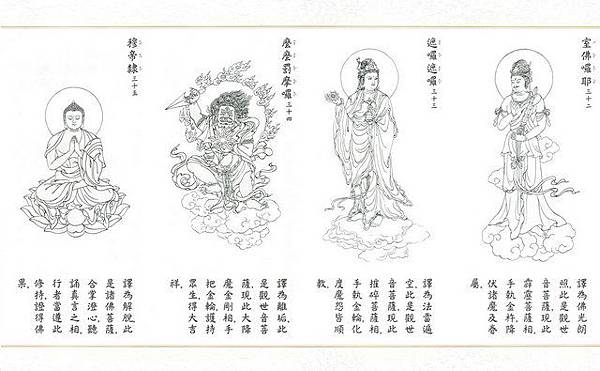 室佛囉耶 三十二
譯為佛光朗
照，此是觀世
音菩薩，現此
霹靂菩薩相，
手執金杵，降
伏諸魔及眷
屬。
遮囉遮囉 三十三
譯為法雷遍
空，此是觀世
音菩薩，現此
摧碎菩薩相，
手執金輪，化
度魔怨皆順
教。
麼麼罰摩囉 三十四
譯為離垢，此
是觀世音菩
薩，現此大降
魔金剛相，手
把金輪，護持
眾生，得大吉
祥。
穆帝隸 三十五
譯為解脫，此
是諸佛菩薩，
合掌澄心，聽
誦真言之相，
行者當遵此
修持，證得佛
果。